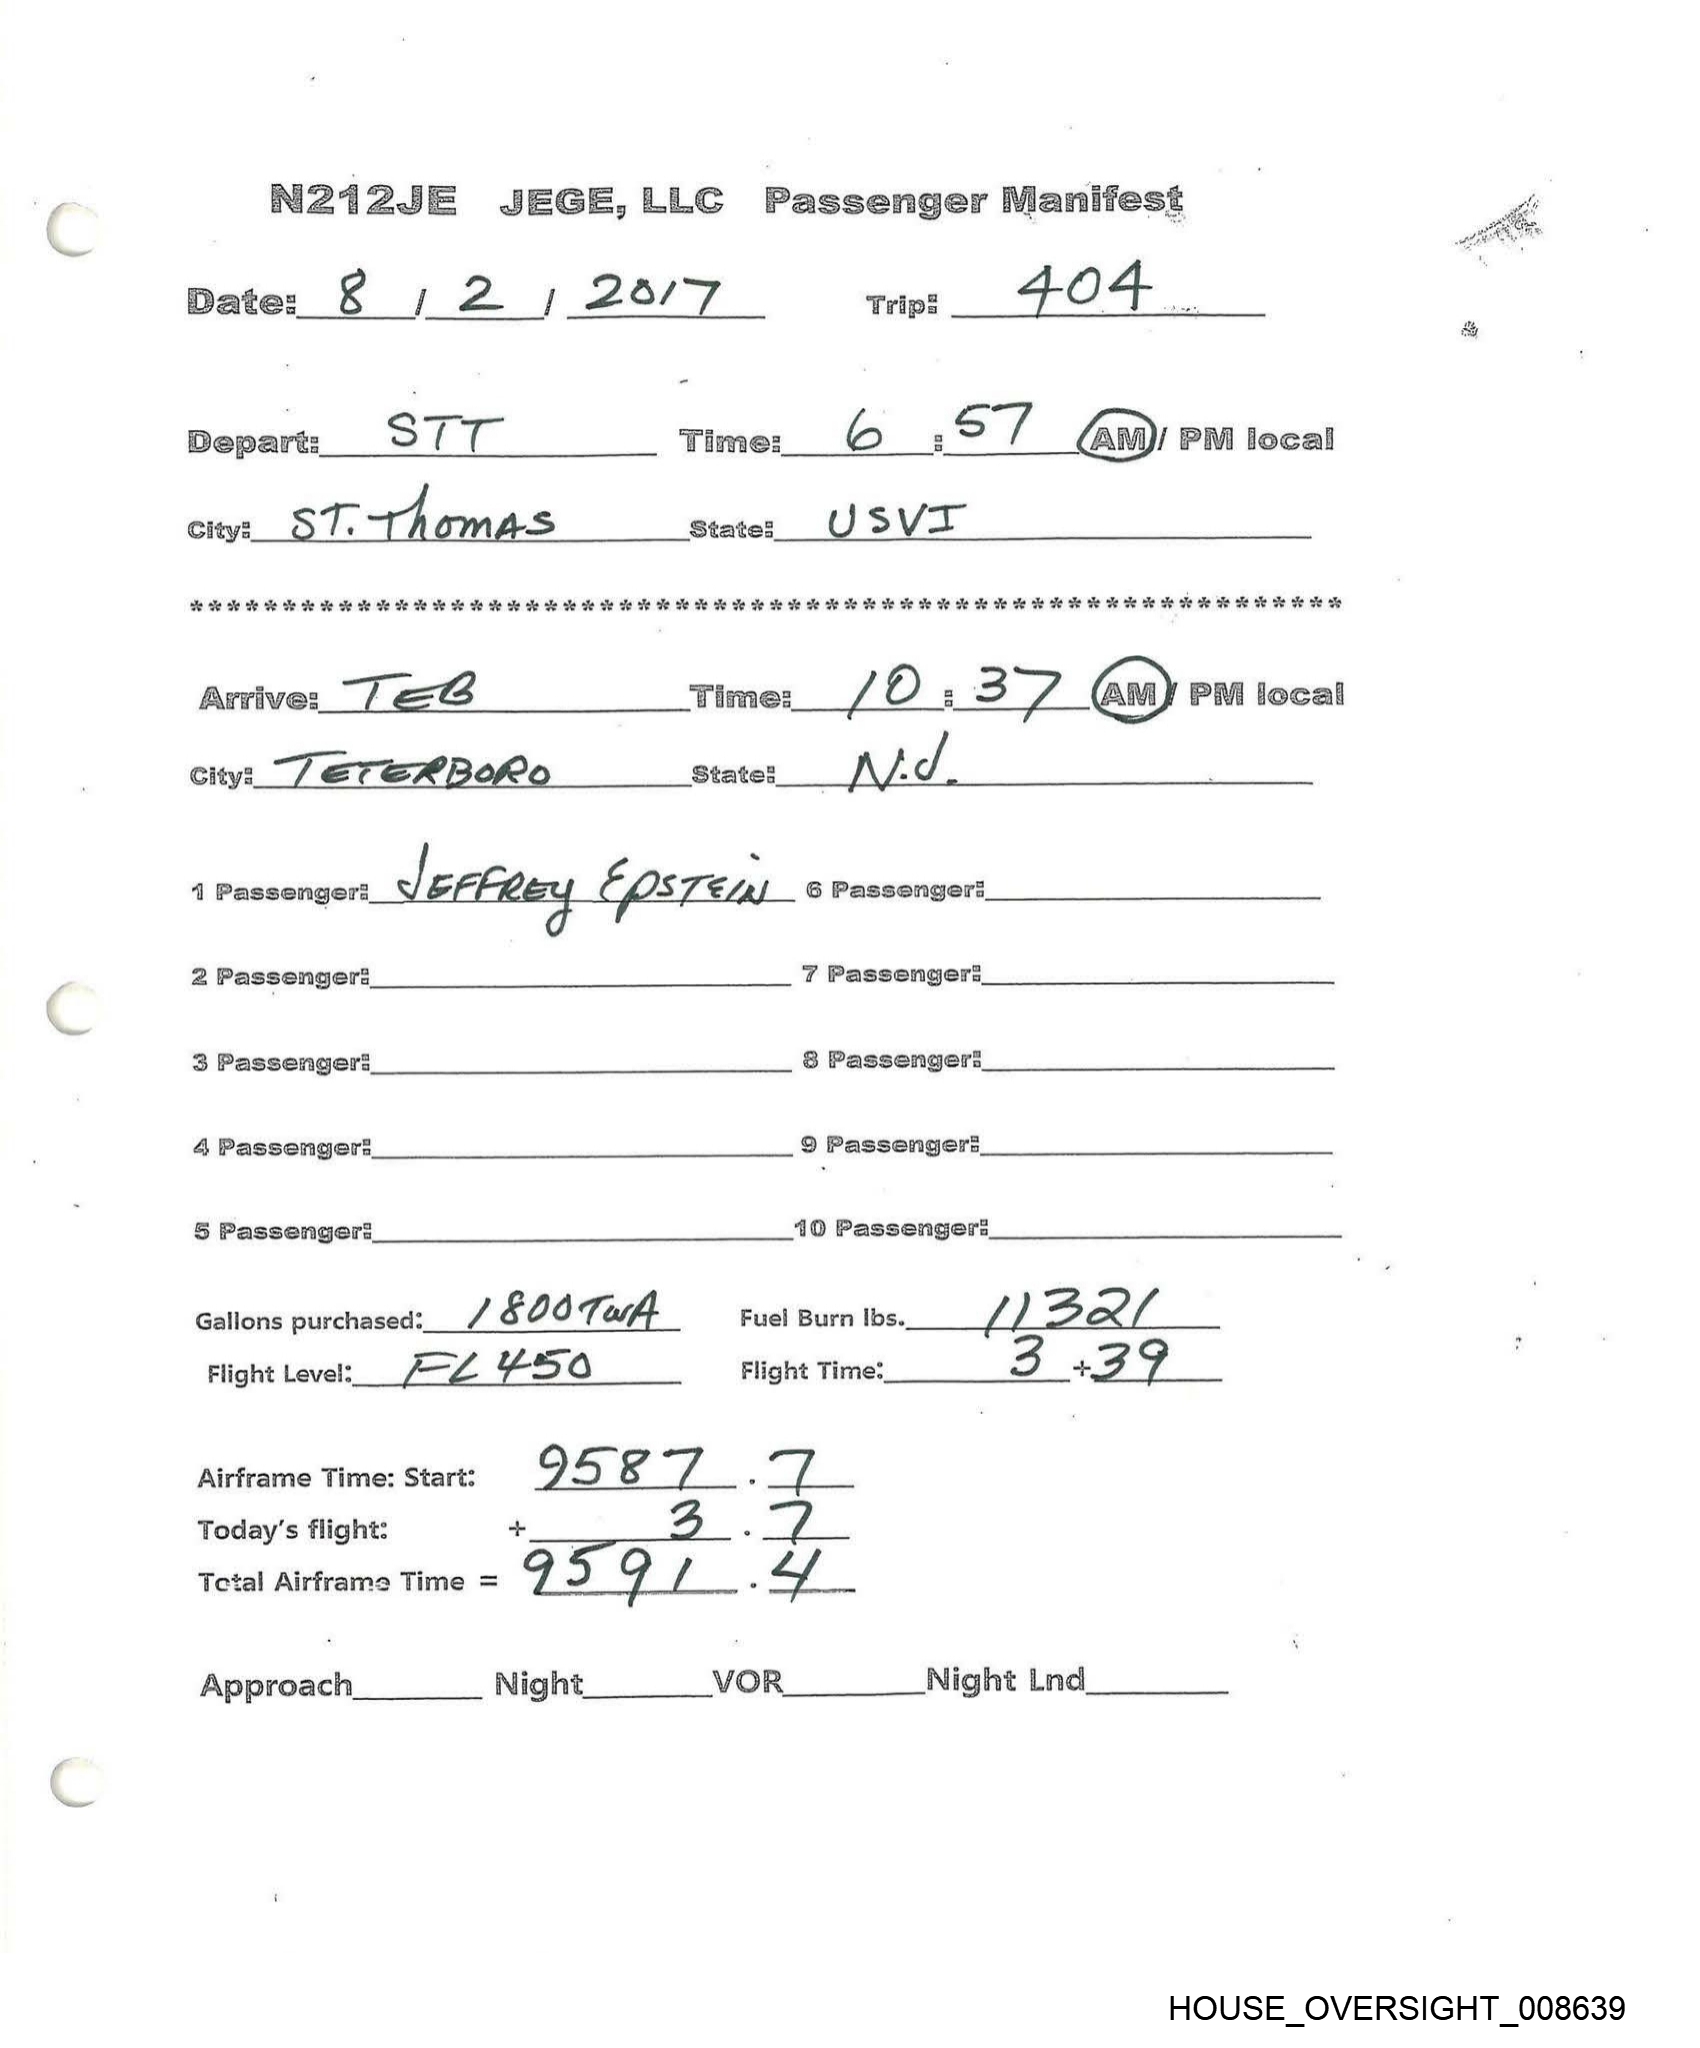 N212JE JEGE, LLC Passenger Manifest
Date: 8 / 2 / 2017 Trip: 404
Depart: STT Time: 6 : 57 AM / PM local
City: ST. Thomas State: USVI
****************************************************************
Arrive: TEB Time: 10 : 37 AM / PM local
City: TETERBORO State: N.J.
1 Passenger: JEFFREY EPSTEIN 6 Passenger:
2 Passenger: 7 Passenger:
3 Passenger: 8 Passenger:
4 Passenger: 9 Passenger:
5 Passenger: 10 Passenger:
Gallons purchased: 1800 TWA Fuel Burn lbs. 11321
Flight Level: FL 450 Flight Time: 3 + 39
Airframe Time: Start: 9587 . 7
Today's flight: + 3 . 7
Total Airframe Time = 9591 . 4
Approach Night VOR Night Lnd
HOUSE_OVERSIGHT_008639